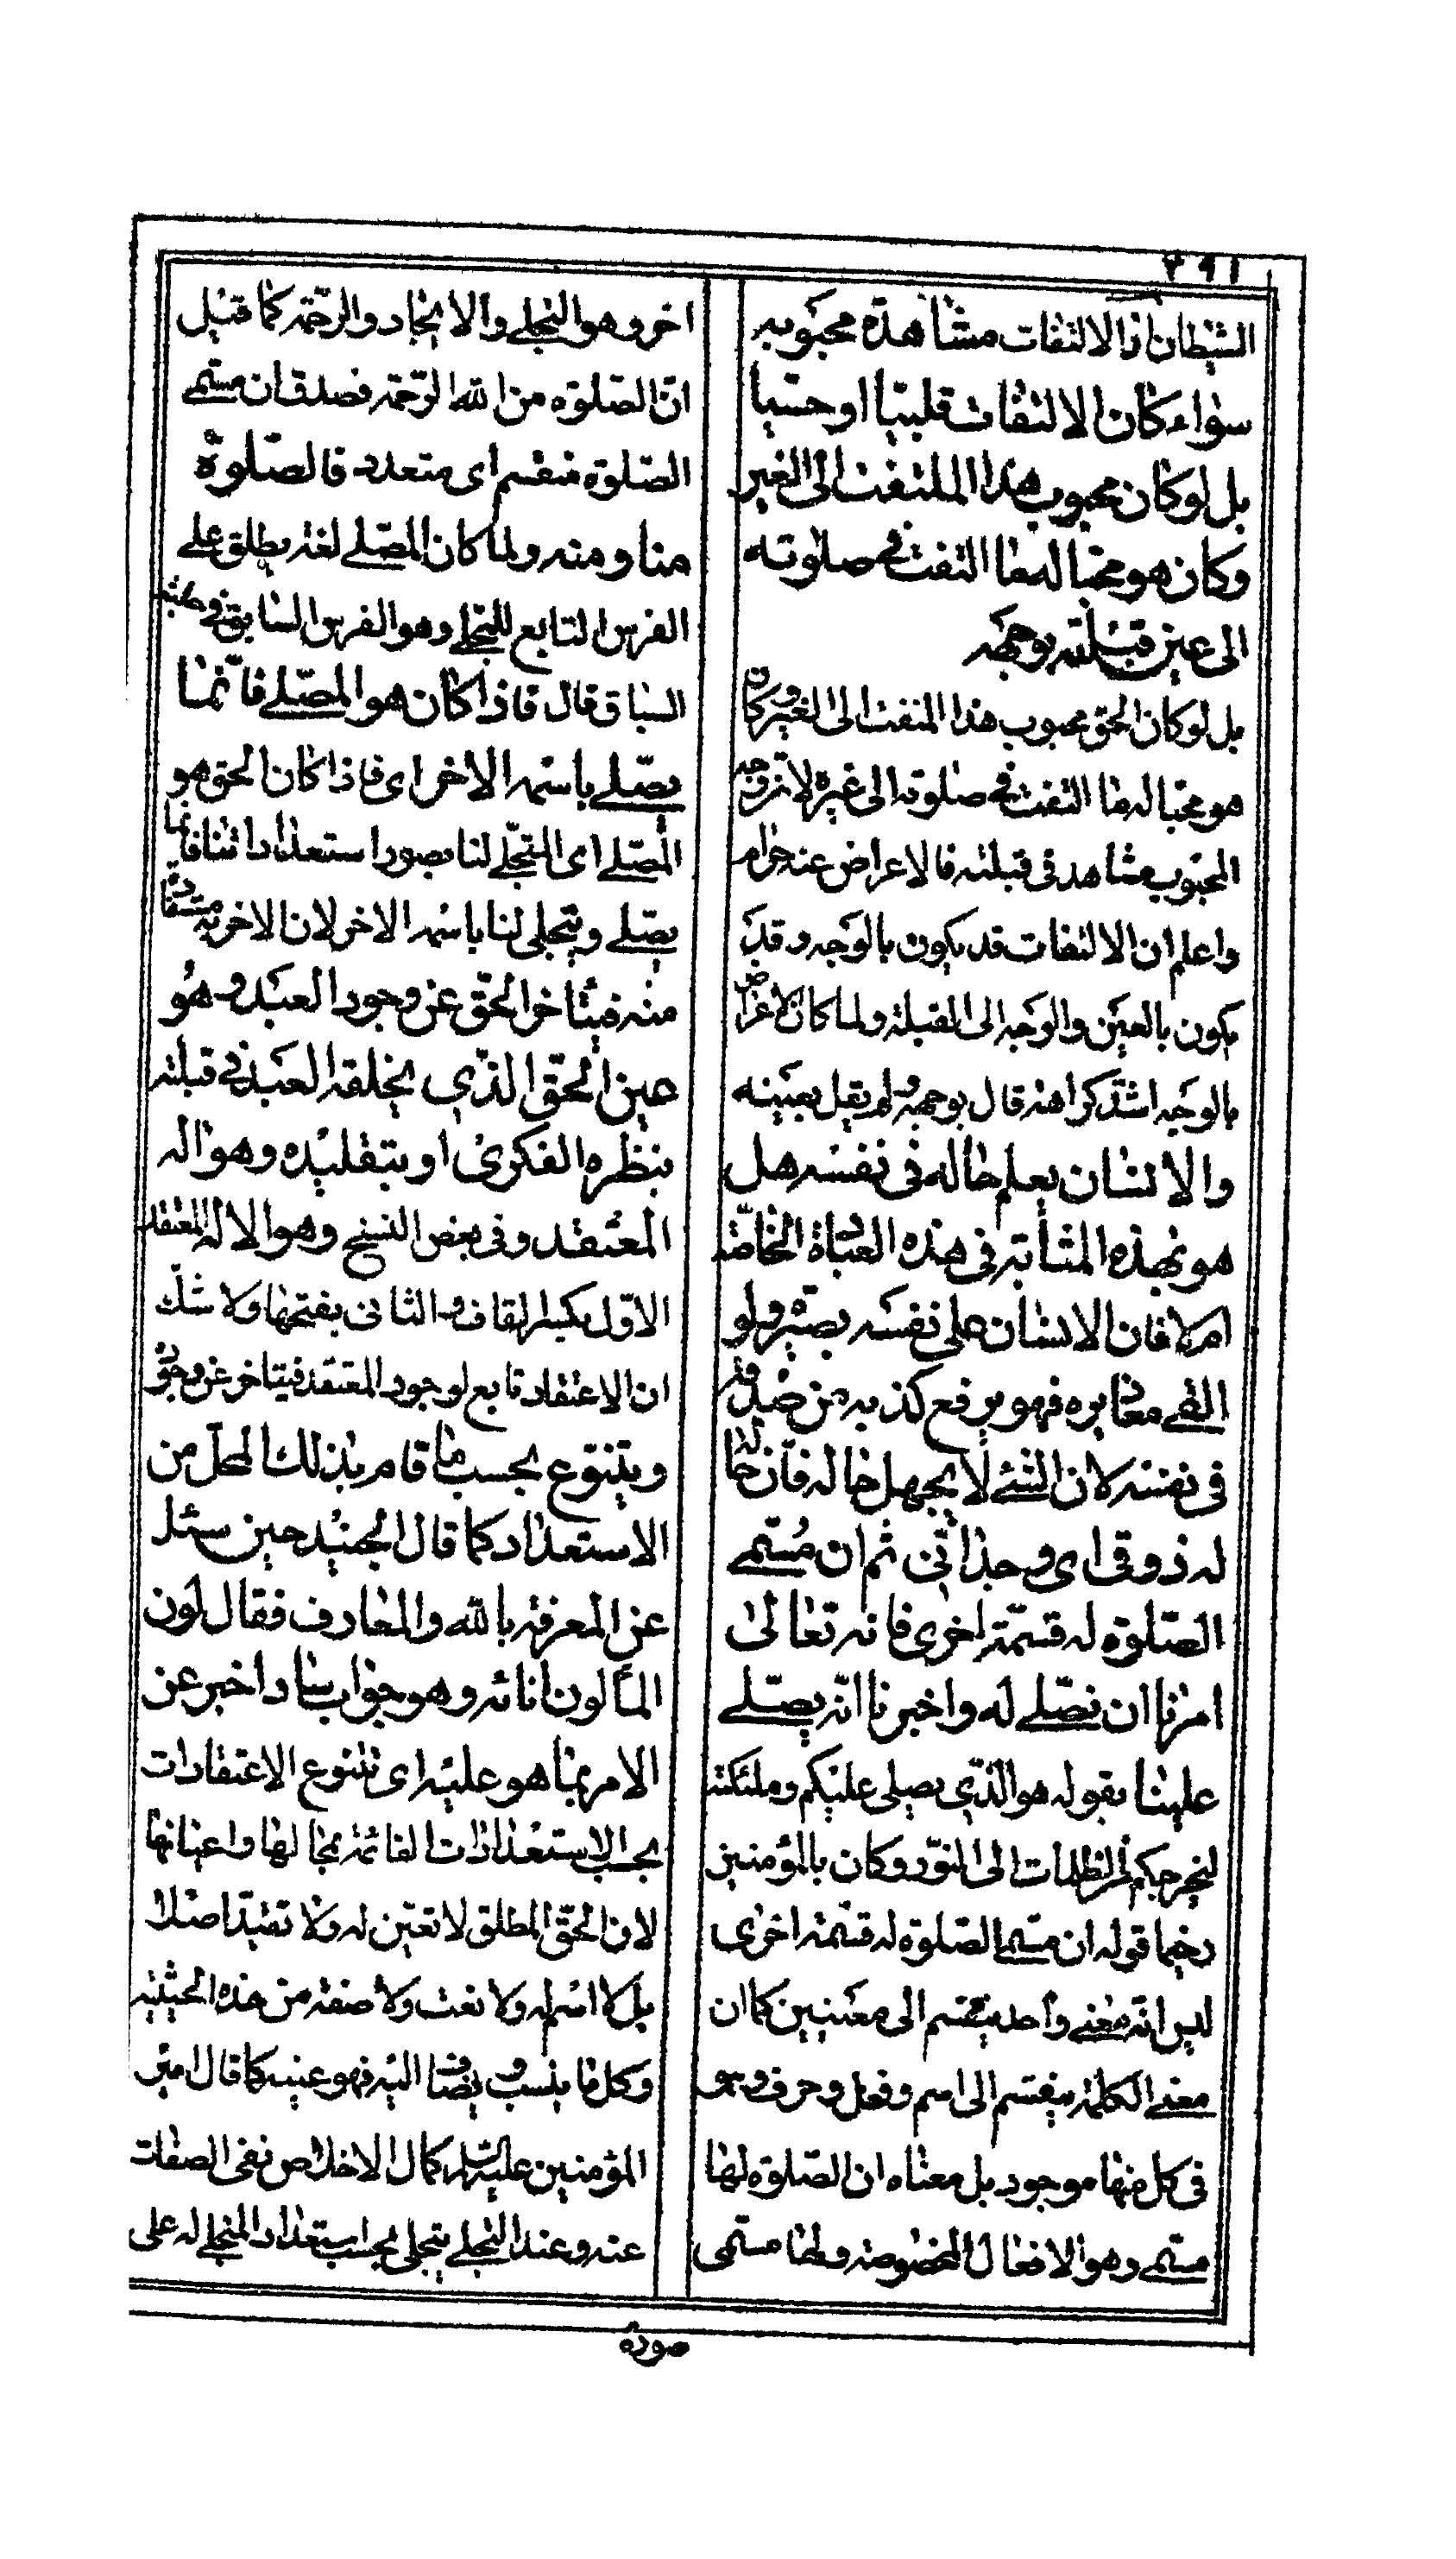 ٣٩١
الشيطان اذ الالتفات مشاهدة محبوبه
سواء كان الالتفات قلبيا او حسيا
بل لو كان محبوب هذا الملتفت الى الغير
وكان هو محبا له ما التفت فى صلوته
الى عين قبلته بوجهه
بل لو كان الحق محبوب هذا الملتفت الى الغير وكان
هو محبا له ما التفت فى صلوته الى غيره لان وجه
المحبوب مشاهد فى قبلته فالاعراض عنه حرام
واعلم ان الالتفات قد يكون بالوجه وقد
يكون بالعين والوجه الى القبلة ولما كان الاعراض
بالوجه اشد كراهة قال بوجهه ولم يقل بعينه
والانسان يعلم حاله فى نفسه هل
هو بهذه المثابة فى هذه العبادة الخاصة
ام لا فان الانسان على نفسه بصيرة ولو
القى معاذيره فهو يعرف كذبه من صدقه
فى نفسه لان الشئ لا يجهل حاله فان حاله
له ذوقى اى وجدانى ثم ان مسمى
الصلوة له قسمة اخرى فانه تعالى
امرنا ان نصلى له واخبرنا انه يصلى
علينا بقوله هو الذى يصلى عليكم وملئكته
ليخرجكم من الظلمات الى النور وكان بالمؤمنين
رحيما قوله ان مسمى الصلوة له قسمة اخرى
ليس انه معنى واحد ينقسم الى معنيين كما ان
معنى الكلمة ينقسم الى اسم وفعل وحرف وهو
فى كل منها موجود بل معناه ان الصلوة لها
مسمى وهو الافعال المخصوصة ولها مسمى
اخر وهو التجلى والايجاد والرحمة كما قيل
ان الصلوة من الله الرحمة فصدق ان مسمى
الصلوة منقسم اى متعدد فالصلوة
منا ومنه ولما كان المصلى لغة يطلق على
الفرس التابع للمجلى وهو الفرس السابق فى حلبة
السباق قال فاذا كان هو المصلى فانما
يصلى باسمه الاخر اى فاذا كان الحق هو
المصلى اى المتجلى لنا بصور استعداداتنا فانما
يصلى ويتجلى لنا باسمه الاخر لان الاخرية مستفادة
منه فيتاخر الحق عن وجود العبد وهو
عين الحق الذى يخلقه العبد فى قبلته
بنظره الفكرى او بتقليده وهو اله
المعتقد وفى بعض النسخ وهو الاله المعتقد
الاول بكسر القاف والثانى بفتحها ولا شك
ان الاعتقاد تابع لوجود المعتقد فيتاخر عن وجوده
ويتنوع بحسب ما قام بذلك المحل من
الاستعداد كما قال الجنيد حين سئل
عن المعرفة بالله والمعارف فقال لون
الماء لون انائه وهو جواب ساد اخبر عن
الامر بما هو عليه اى تتنوع الاعتقادات
بحسب الاستعدادات القائمة بمحالها واعيانها
لان الحق المطلق لا تعين له ولا تقيد اصلا
بل لا اسم له ولا نعت ولا صفة من هذه الحيثية
وكل ما ينسب ويضاف اليه فهو عينه كما قال امير
المؤمنين عليه السلام كمال الاخلاص نفى الصفات
عنه وعند التجلى يتجلى بحسب استعداد المتجلى له على
صورة